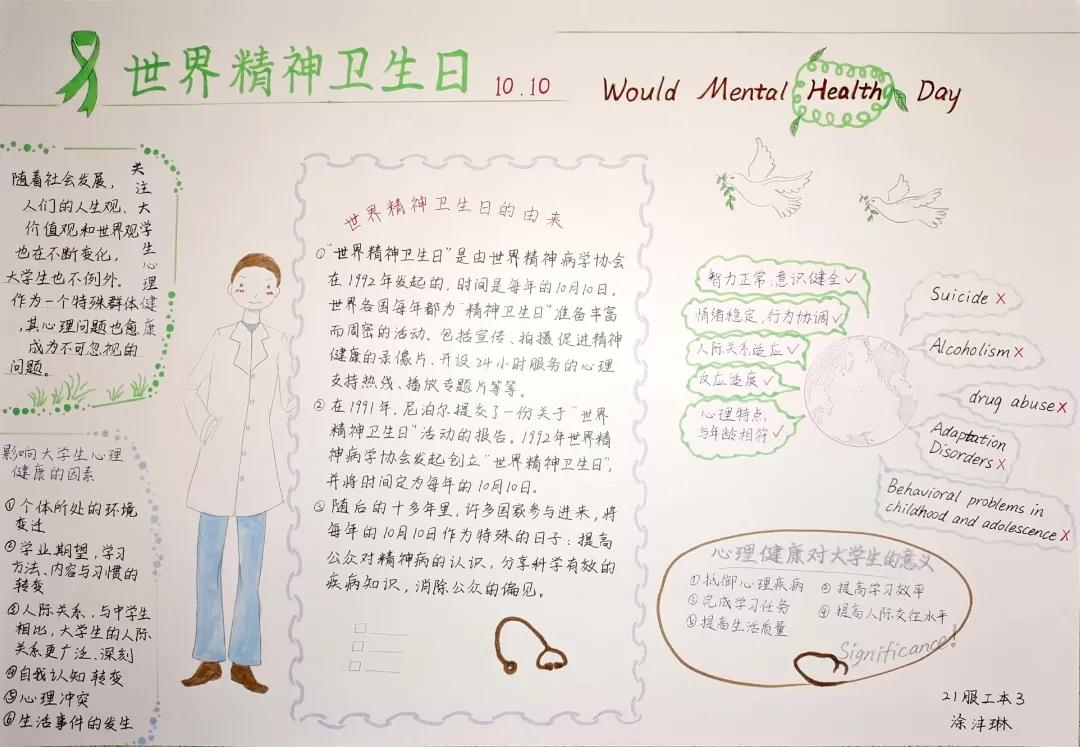 世界精神卫生日 10.10
Would Mental Health Day
关注大学生心理健康
随着社会发展，
人们的人生观、
价值观和世界观
也在不断变化，
大学生也不例外。
作为一个特殊群体
，其心理问题也愈
成为不可忽视的
问题。
影响大学生心理
健康的因素
①个体所处的环境
变迁
②学业期望，学习
方法、内容与习惯的
转变
③人际关系，与中学生
相比，大学生的人际
关系更广泛、深刻
④自我认知转变
⑤心理冲突
⑥生活事件的发生
世界精神卫生日的由来
①“世界精神卫生日”是由世界精神病学协会
在1992年发起的，时间是每年的10月10日。
世界各国每年都为“精神卫生日”准备丰富
而周密的活动。包括宣传、拍摄促进精神
健康的录像片、开设24小时服务的心理
支持热线、播放专题片等等。
②在1991年，尼泊尔提交了一份关于“世界
精神卫生日”活动的报告。1992年世界精
神病学协会发起创立“世界精神卫生日”，
并将时间定为每年的10月10日。
③随后的十多年里，许多国家参与进来，将
每年的10月10日作为特殊的日子：提高
公众对精神病的认识，分享科学有效的
疾病知识，消除公众的偏见。
智力正常，意识健全✓
情绪稳定，行为协调✓
人际关系适应✓
反应适度✓
心理特点
与年龄相符✓
Suicide ×
Alcoholism ×
drug abuse ×
Adaptation
Disorders ×
Behavioral problems in
childhood and adolescence ×
心理健康对大学生的意义
①抵御心理疾病 ②提高学习效率
③完成学习任务 ④提高人际交往水平
⑤提高生活质量
Significance!
21服工本3
涂沣琳